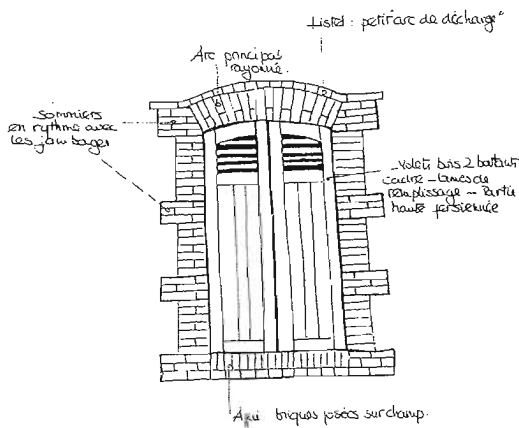 Listel : petit "arc de décharge"
Arc principal
rayonné.
Sommiers
en rythme avec
les jambages
Volets bois 2 battants
cadre - lames de
remplissage - Partie
haute persiennée
briques posées sur champ.